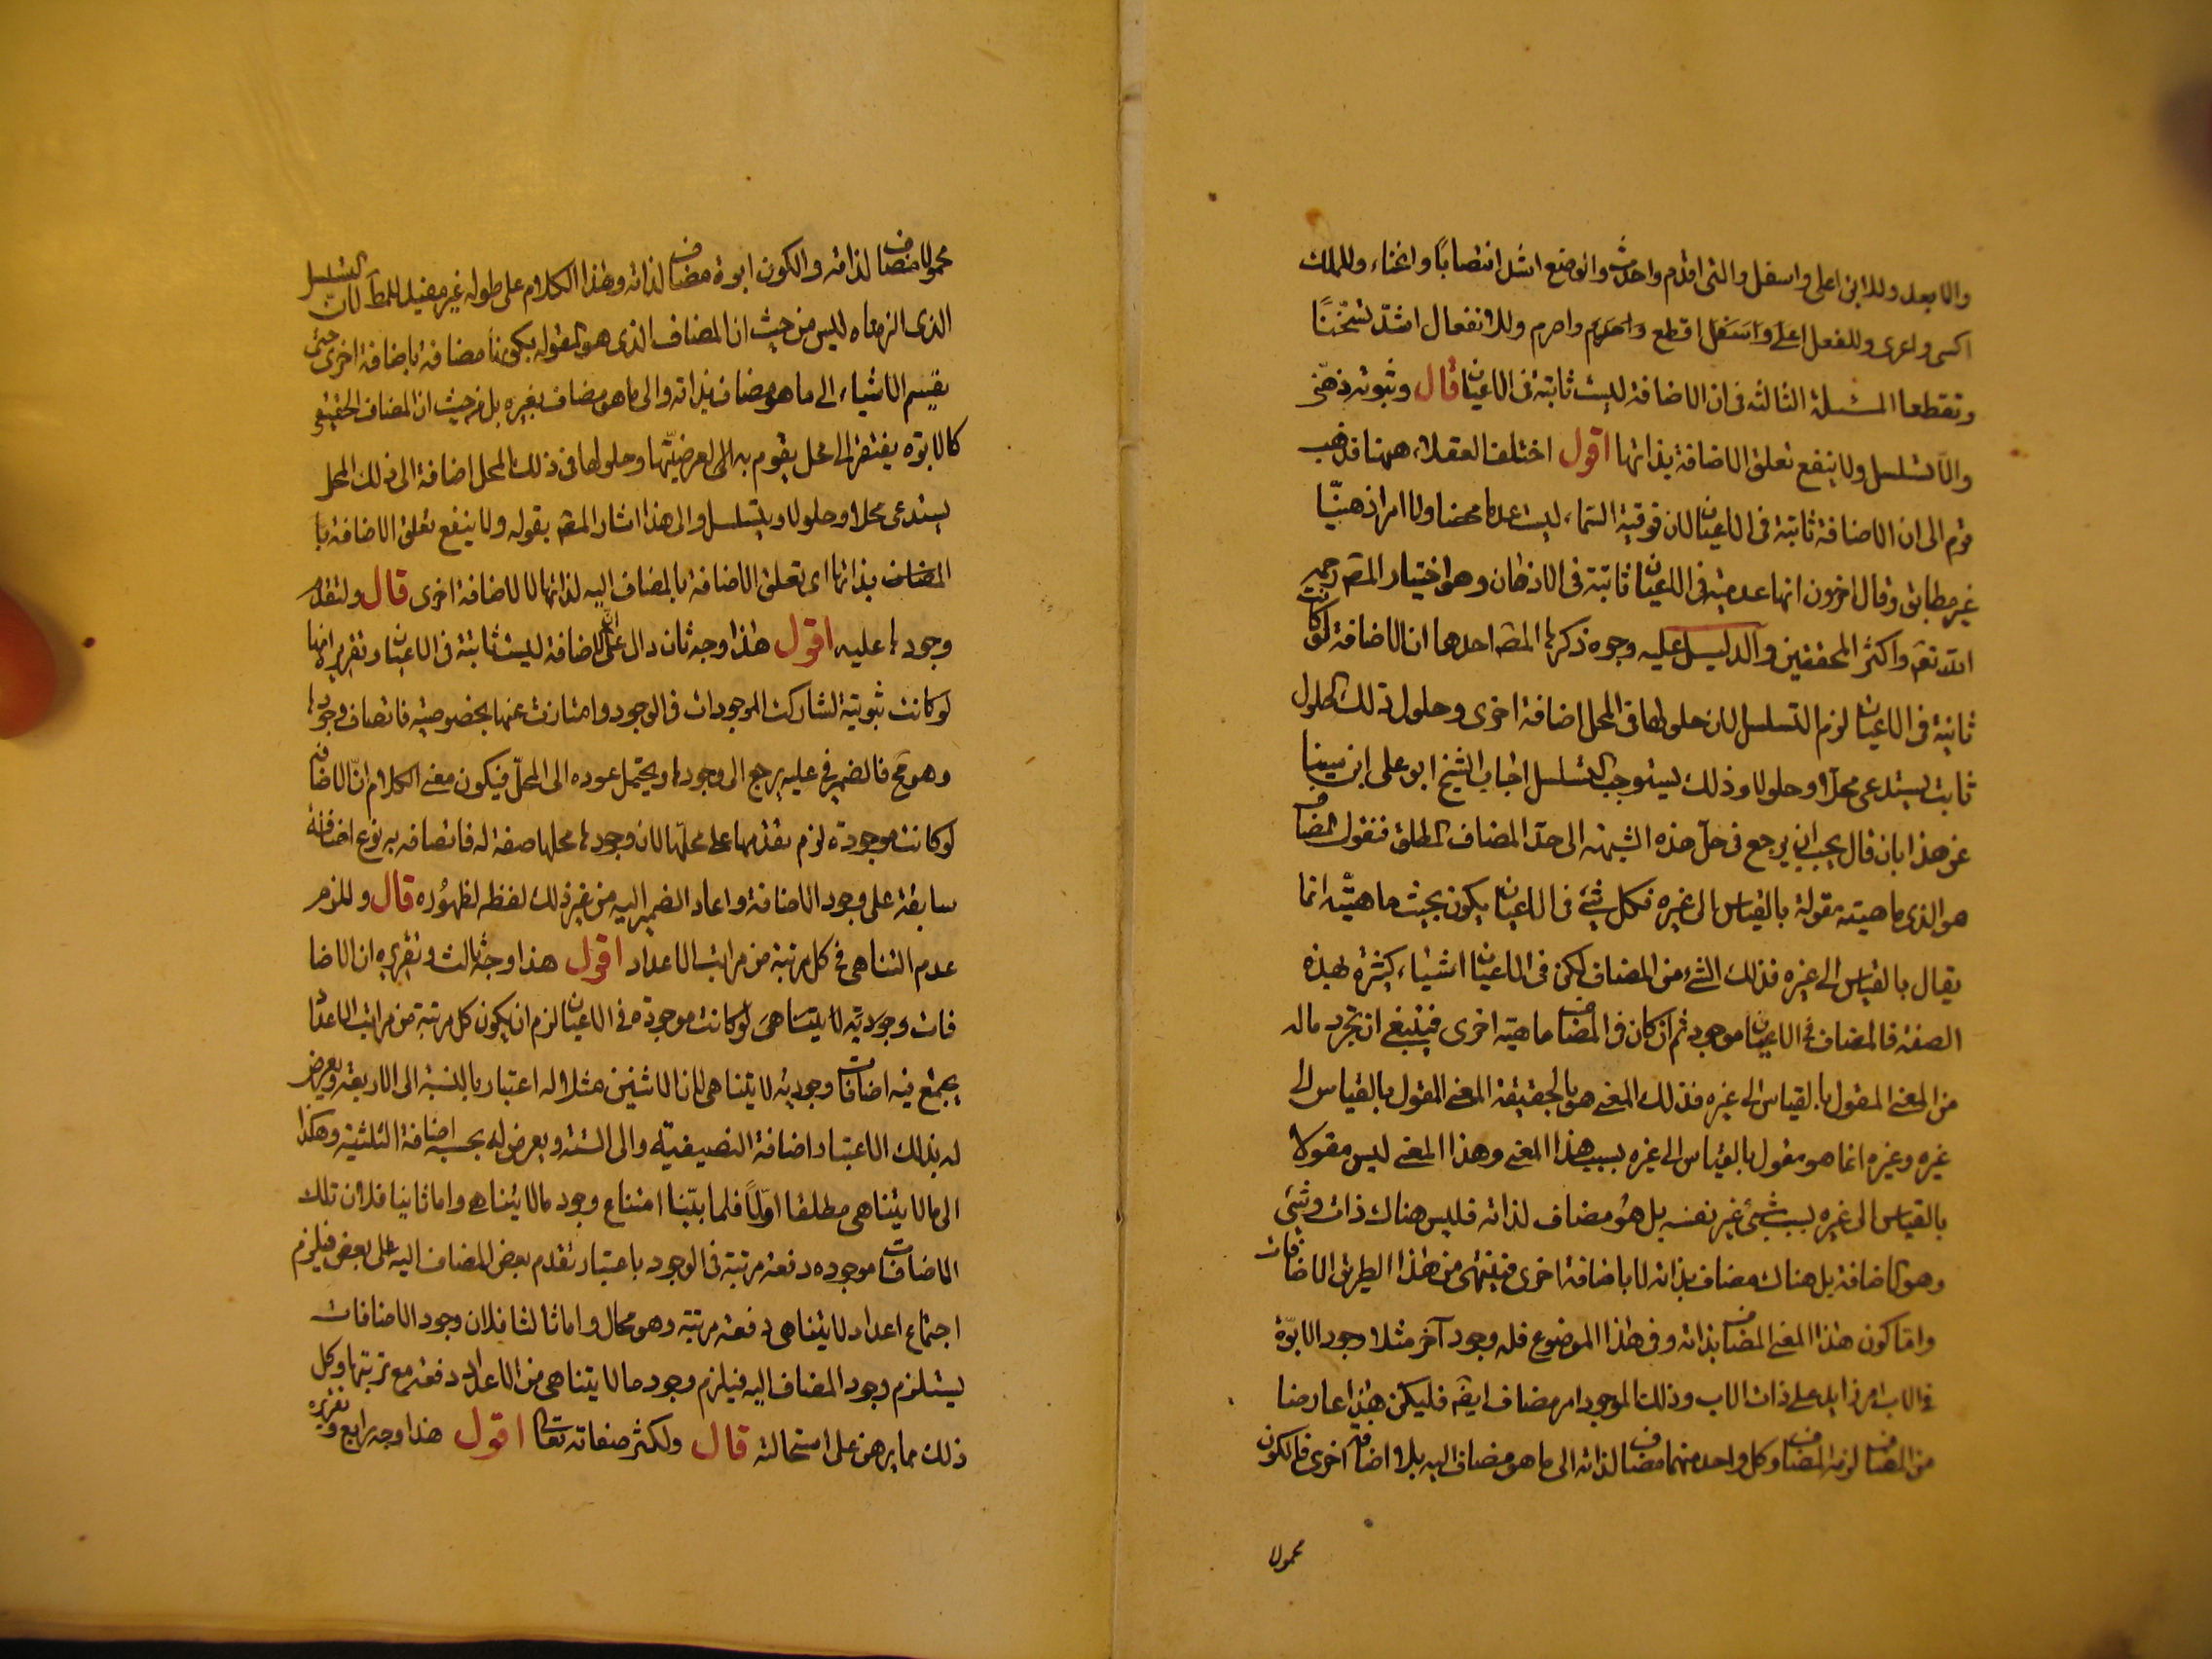 والابعد وللابن اعلى واسفل والمتى اقدم واحدث والوضع اشد انتصابا وانحناء وللملك
اكسى واعرى وللفعل اعلى واسفل اقطع واصرم وللانفعال اشد تسخنا
وتقطعا المسئلة الثالثه فى ان الاضافة ليست ثابتة فى الاعيان قال وثبوته ذهنى
والا تسلسل ولا ينفع تعلق الاضافة بذاتها اقول اختلف العقلاء ههنا فذهب
قوم الى ان الاضافة ثابتة فى الاعيان لان فوقية السماء ليست عدما محضا ولا امرا ذهنيا
غير مطابق وقال اخرون انها عدمية فى الاعيان ثابتة فى الاذهان وهو اختيار المصـ رحمه
الله تعـ واكثر المحققين والدليل عليه وجوه ذكرها المصـ احدها ان الاضافة لو كانت
ثابتة فى الاعيان لزم التسلسل لان حلولها فى المحل اضافة اخرى وحلول ذلك الحلول
ثابت يستدعى محلا وحلولا وذلك يستوجب التسلسل اجاب الشيخ ابو على ابن سينا
عن هذا بان قال يجب ان يرجع فى حل هذه الشبهة الى حد المضاف المطلق فنقول المضاف
هو الذى ماهيته مقولة بالقياس الى غيره فكل شئ فى الاعيان يكون بحيث ماهيته انما
يقال بالقياس الى غيره فذلك الشئ من المضاف لكن فى الاعيان اشياء كثيرة بهذه
الصفة فالمضاف فى الاعيان موجود ثم ان كان فى المضاف ماهية اخرى فينبغى ان تجرد ماله
من المعنى المقول بالقياس الى غيره فذلك المعنى هو بالحقيقة المعنى المقول بالقياس الى
غيره وغيره انما هو مقول بالقياس الى غيره بسبب هذا المعنى وهذا المعنى ليس مقولا
بالقياس الى غيره بسبب شئ غير نفسه بل هو مضاف لذاته فليس هناك ذات وشئ
وهو الاضافة بل هناك مضاف بذاته لا باضافة اخرى فتنتهى من هذا الطريق الاضافات
واما كون هذا المعنى المضاف بذاته وفى هذا الموضوع فله وجود آخر مثلا وجود الابوة
فى الاب امر زايد على ذات الاب وذلك الموجود امر مضاف ايضـ فليكن هذا عارضا
من المضاف لزمه المضاف وكل واحد منهما مضاف لذاته الى ما هو مضاف اليه بلا اضافة اخرى فالكون
محمولا
محمولا مضاف لذاته والكون ابوة مضاف لذاته وهذا الكلام على طوله غير مفيد للمط لان التسلسل
الذى الزمناه ليس من حيث ان المضاف الذى هو المقوله يكون مضافة باضافة اخرى حتى
يقسم الاشياء الى ما هو مضاف بذاته والى ما هو مضاف بغيره بل من حيث ان المضاف الحقيقى
كالابوه يفتقر الى محل يقوم به الى لعرضيتها وحلولها فى ذلك المحل اضافة الى ذلك المحل
يستدعى محلا وحلولا ويتسلسل والى هذا اشار المصـ بقوله ولا ينفع تعلق الاضافة با
المضاف بذاتها اى تعلق الاضافة بالمضاف اليه لذاتها لا لاضافة اخرى قال ولتقدم
وجودها عليه اقول هذا وجه ثان دال على ان الاضافة ليست ثابتة فى الاعيان وتقريره انها
لو كانت ثبوتية لشاركت الموجودات فى الوجود وامتازت عنها بخصوصية فاتصاف وجودها
وهو مح فالضمير فى عليه يرجع الى وجودها ويحتمل عوده الى المحل فيكون معنى الكلام ان الاضافة
لو كانت موجودة لزم تقدمها على محلها لان وجودها محلها صفة له فاتصافه به نوع اضافة
سابقة على وجود الاضافة واعاد الضمير اليه من غير ذلك لفظه لظهوره قال وللزم
عدم التناهى فى كل مرتبة من مراتب الاعداد اقول هذا وجه ثالث وتقريره ان الاضا
فات وجودية لا يتناهى لو كانت موجودة فى الاعيان لزم ان يكون كل مرتبة من مراتب الاعداد
يجتمع فيه اضافات وجودية لا يتناهى لان الاثنين مثلا له اعتبار بالنسبة الى الاربعة ويعرض
له بذلك الاعتبار اضافة النصيفية والى الستة ويعرض له بحسبه اضافة الثلثية وهكذا
الى ما لا يتناهى مطلقا اولا فلما بينا امتناع وجود ما لا يتناهى واما ثانيا فلان تلك
الاضافات موجوده دفعة مرتبة فى الوجود باعتبار تقدم بعض المضاف اليه على بعض فيلزم
اجتماع اعداد لا يتناهى دفعة مرتبة وهو محال واما ثالثا فلان وجود الاضافات
يستلزم وجود المضاف اليه فيلزم وجود ما لا يتناهى من الاعداد دفعة مع ترتبها وكل
ذلك مما برهن على استحالته قال ولكثر صفاته تعالى اقول هذا وجه رابع وتقريره